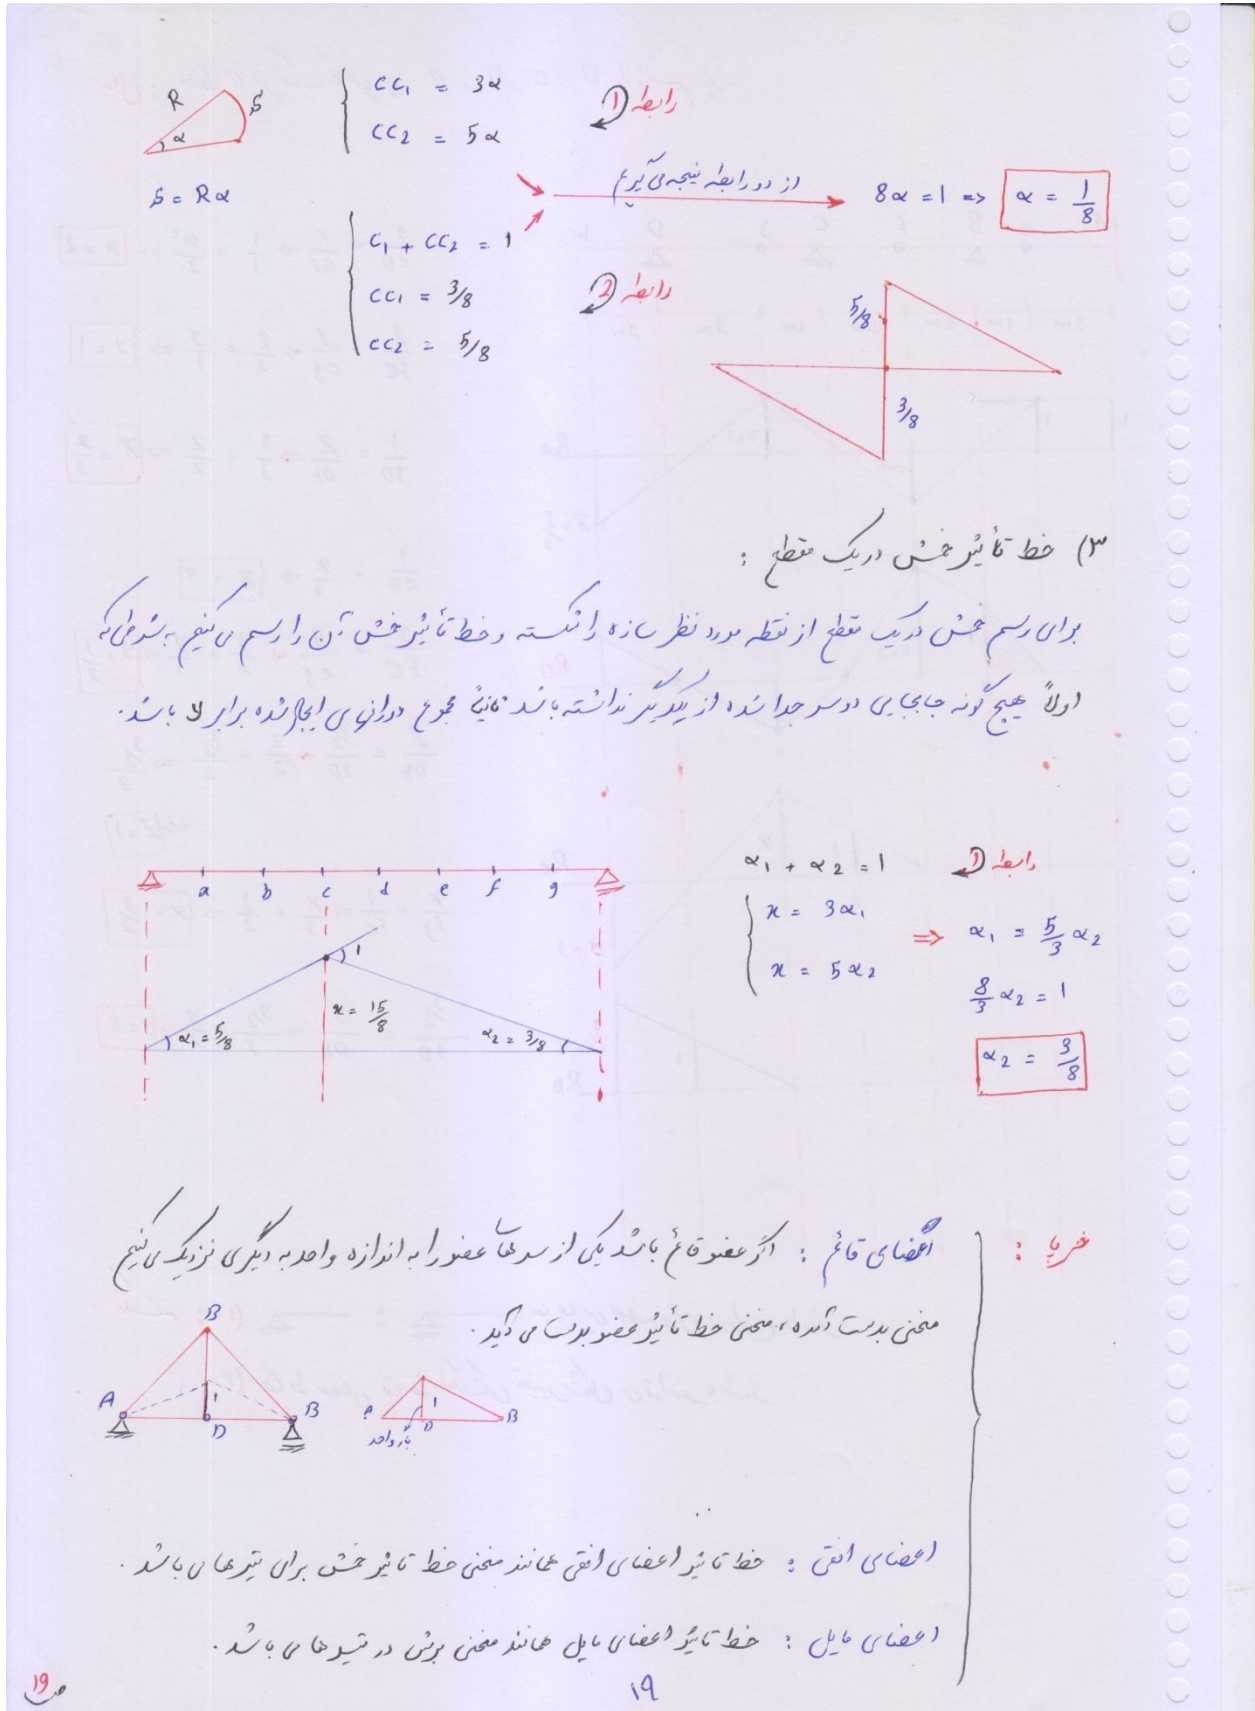 R
S
α
S = Rα
CC1 = 3α
CC2 = 5α
رابطه 1
C1 + CC2 = 1
CC1 = 3/8
CC2 = 5/8
رابطه 2
از دو رابطه نتیجه می‌گیریم
8α = 1 => α = 1/8
5/8
3/8
۳) خط تأثیر خمش در یک مقطع :
برای رسم خمش در یک مقطع از نقطه مورد نظر سازه را شکسته و خط تأثیر خمش آن را رسم می‌کنیم به شرطی که
اولاً هیچ گونه جابجایی دو سر جدا شده از یکدیگر نداشته باشد ثانیاً مجموع دورانهای ایجاد شده برابر لا باشد.
a b c d e f g
1
x = 15/8
α1 = 5/8
α2 = 3/8
α1 + α2 = 1
رابطه 1
x = 3α1
x = 5α2
=> α1 = 5/3 α2
8/3 α2 = 1
α2 = 3/8
خرپا :
اعضای قائم : اگر عضو قائم باشد یکی از سرهای عضو را به اندازه واحد به دیگری نزدیک می‌کنیم
منحنی بدست آمده، منحنی خط تأثیر عضو بدست می آید.
B
A
1
D
B
A
1
D
B
بار واحد
اعضای افقی : خط تاثیر اعضای افقی همانند منحنی خط تاثیر خمش برای تیرها می باشد.
اعضای مایل : خط تاثیر اعضای مایل همانند منحنی برش در تیرها می باشد.
۱۹
ص ۱۹